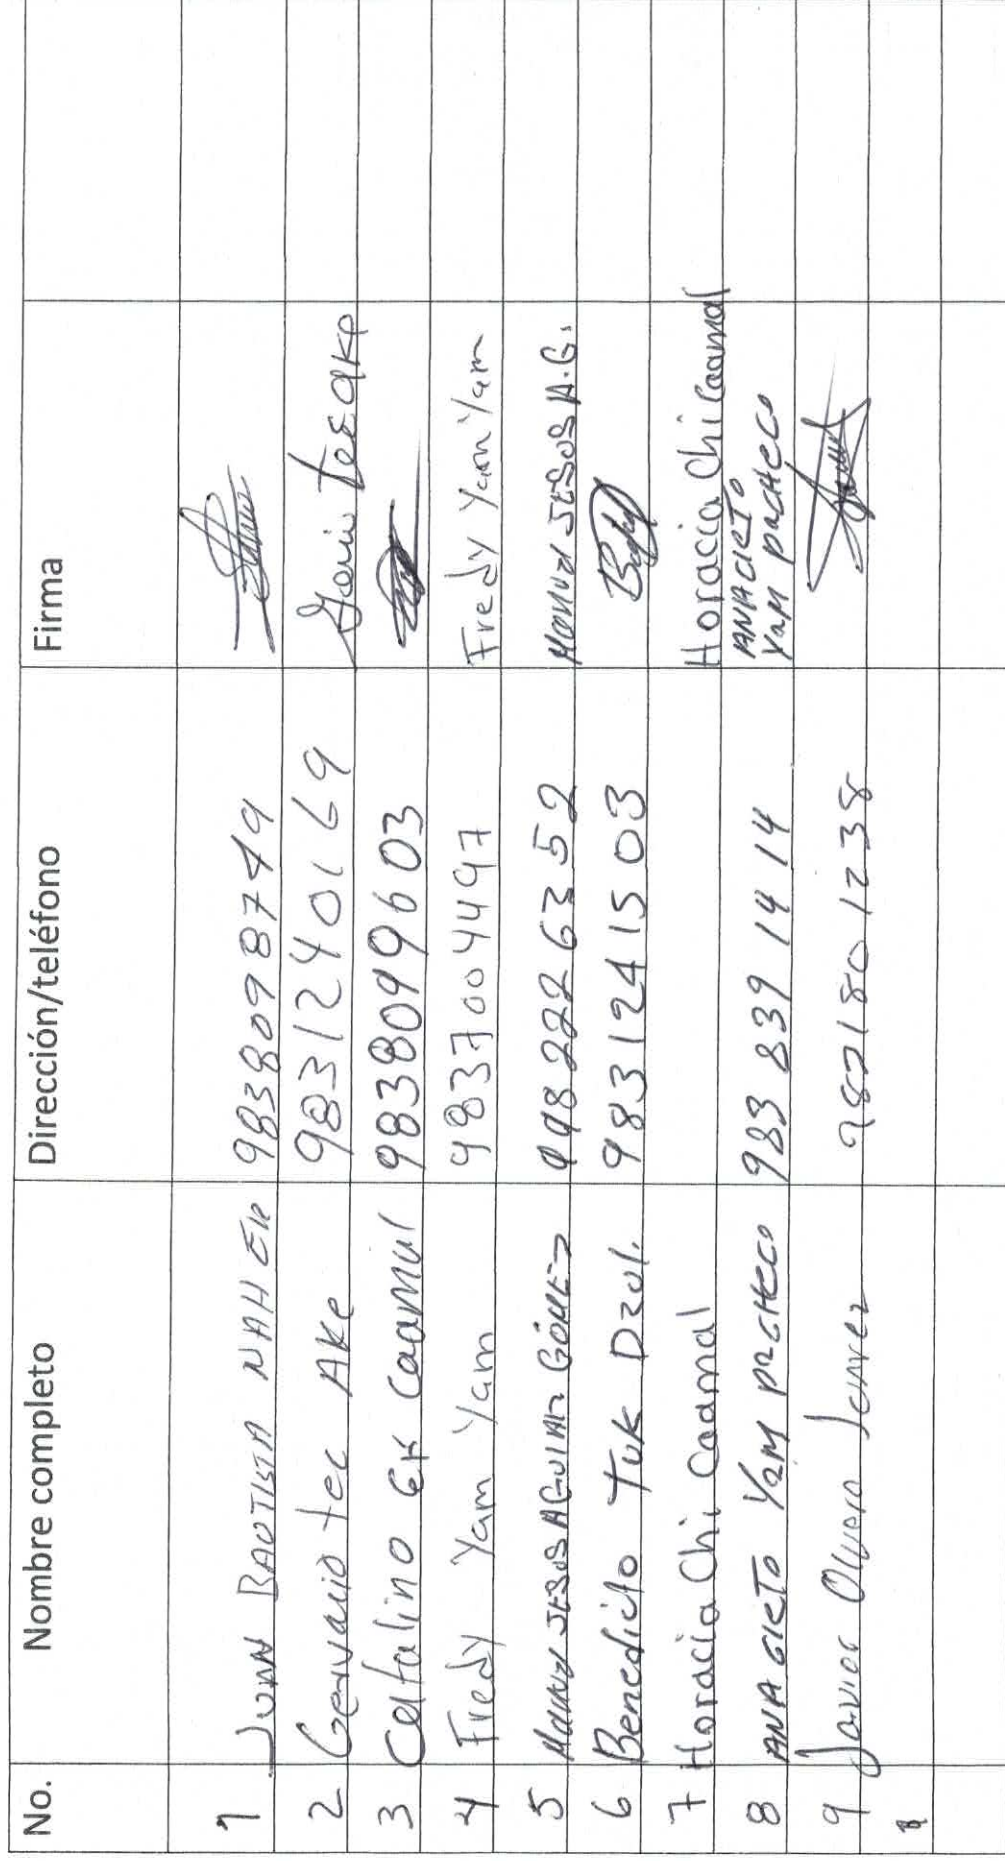 No. Nombre completo Dirección/teléfono Firma
1 JUAN BAUTISTA NAH EK 9838098749
2 Gervacio tec AKe 9831240169 tec ake
3 Catalino EK Caamal 9838099603
4 Fredy Yam Yam 9837004497 Fredy Yam Yam
5 Manuel JESUS AGUILAR GÓMEZ 9982226352 Manuel JESUS A.G.
6 Benedicto Tuk Dzul. 9831241503
7 Horacia Chi Caamal Horacia Chi Caamal
8 ANACLETO YAM PACHECO 983 839 14 14 ANACLETO YAM PACHECO
9 Javier Olivera